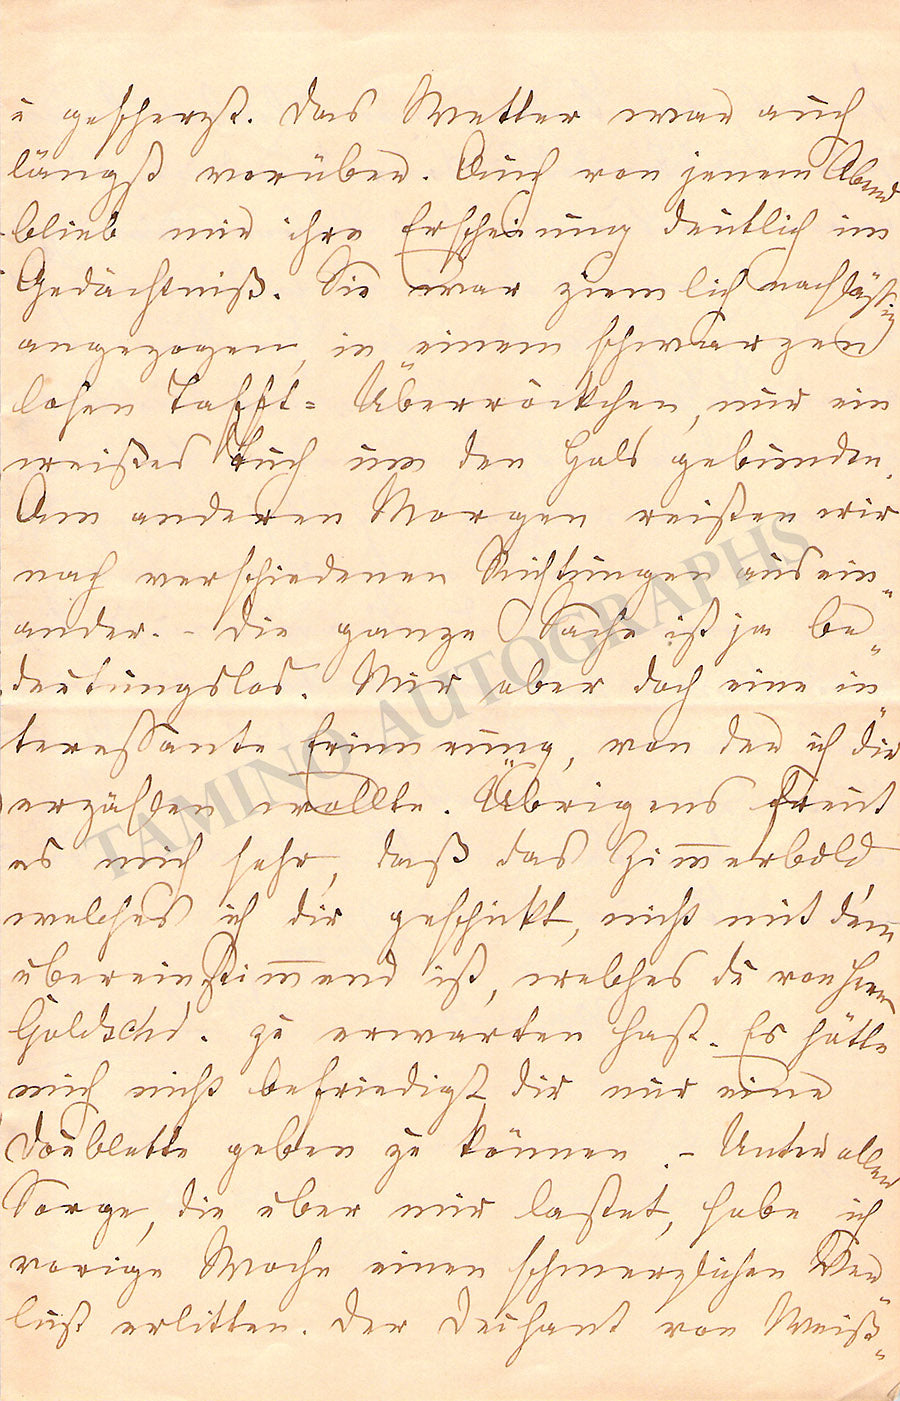 u gescherzt. Das Wetter war auch
längst vorüber. Auch von jenem Abend
blieb mir ihre Erscheinung deutlich im
Gedächtniß. Sie war ziemlich nachlässig
angezogen, in einem schwarzen
losen Tafft= Überröckchen, nur ein
weißes Tuch um den Hals gebunden.
Am anderen Morgen reisten wir
nach verschiedenen Richtungen ausein-
ander. - Die ganze Sache ist ja be-
deutungslos. Mir aber doch eine in-
teressante Erinnerung, von der ich dir
erzählen wollte. Übrigens freut
es mich sehr, daß das Zimmerbild
welches ich dir geschickt, nicht mit dem
übereinstimmend ist, welches du von Herrn
Goldschd. zu erwarten hast. Es hätte
mich nicht befriedigt dir nur eine
Doublette geben zu können. - Unter aller
Sorge, die über mir lastet, habe ich
vorige Woche einen schmerzlichen Ver-
lust erlitten. Der Dechant von Weiß-
TAMINO AUTOGRAPHS